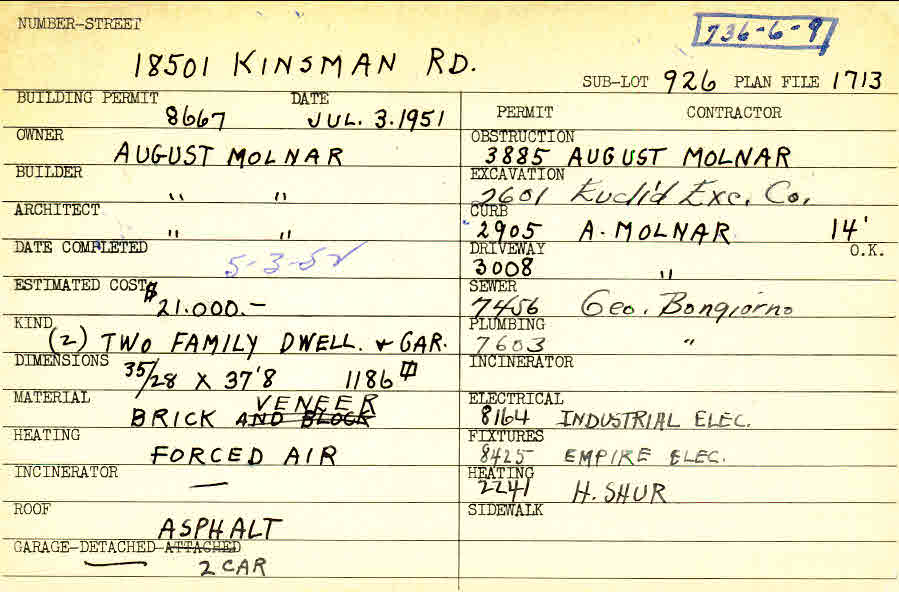 NUMBER-STREET
736-6-9
18501 KINSMAN RD.
SUB-LOT 926 PLAN FILE 1713
BUILDING PERMIT DATE
8667 JUL. 3. 1951
OWNER
AUGUST MOLNAR
BUILDER
" "
ARCHITECT
" "
DATE COMPLETED
5-3-52
ESTIMATED COST
$21.000.-
KIND
(2) TWO FAMILY DWELL. & GAR.
DIMENSIONS
35/28 X 37'8 1186
MATERIAL
VENEER
BRICK AND BLOCK
HEATING
FORCED AIR
INCINERATOR
—
ROOF
ASPHALT
GARAGE-DETACHED-ATTACHED
2 CAR
PERMIT CONTRACTOR
OBSTRUCTION
3885 AUGUST MOLNAR
EXCAVATION
2601 Euclid Exc. Co.
CURB
2905 A. MOLNAR 14'
DRIVEWAY O.K.
3008 "
SEWER
7456 Geo. Bongiorno
PLUMBING
7603 "
INCINERATOR
ELECTRICAL
8164 INDUSTRIAL ELEC.
FIXTURES
8425 EMPIRE ELEC.
HEATING
2241 H. SHUR
SIDEWALK